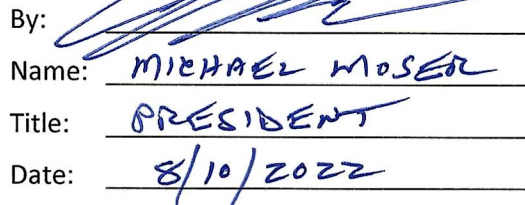 By:
Name: MICHAEL MOSER
Title: PRESIDENT
Date: 8/10/2022